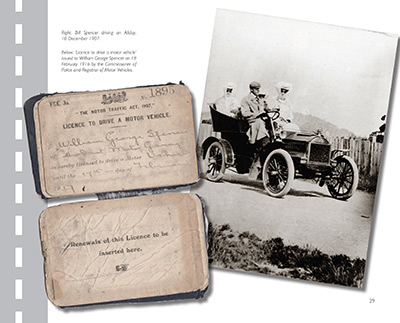 Right: Bill Spencer driving an Allday,
18 December 1907.
Below: 'Licence to drive a motor vehicle'
issued to William George Spencer on 18
February 1916 by the Commissioner of
Police and Registrar of Motor Vehicles.
No. 1895
"THE MOTOR TRAFFIC ACT, 1907."
LICENCE TO DRIVE A MOTOR VEHICLE.
William George Spencer
is hereby licensed to drive a Motor
until the day of
Renewals of this Licence to be
inserted here.
29